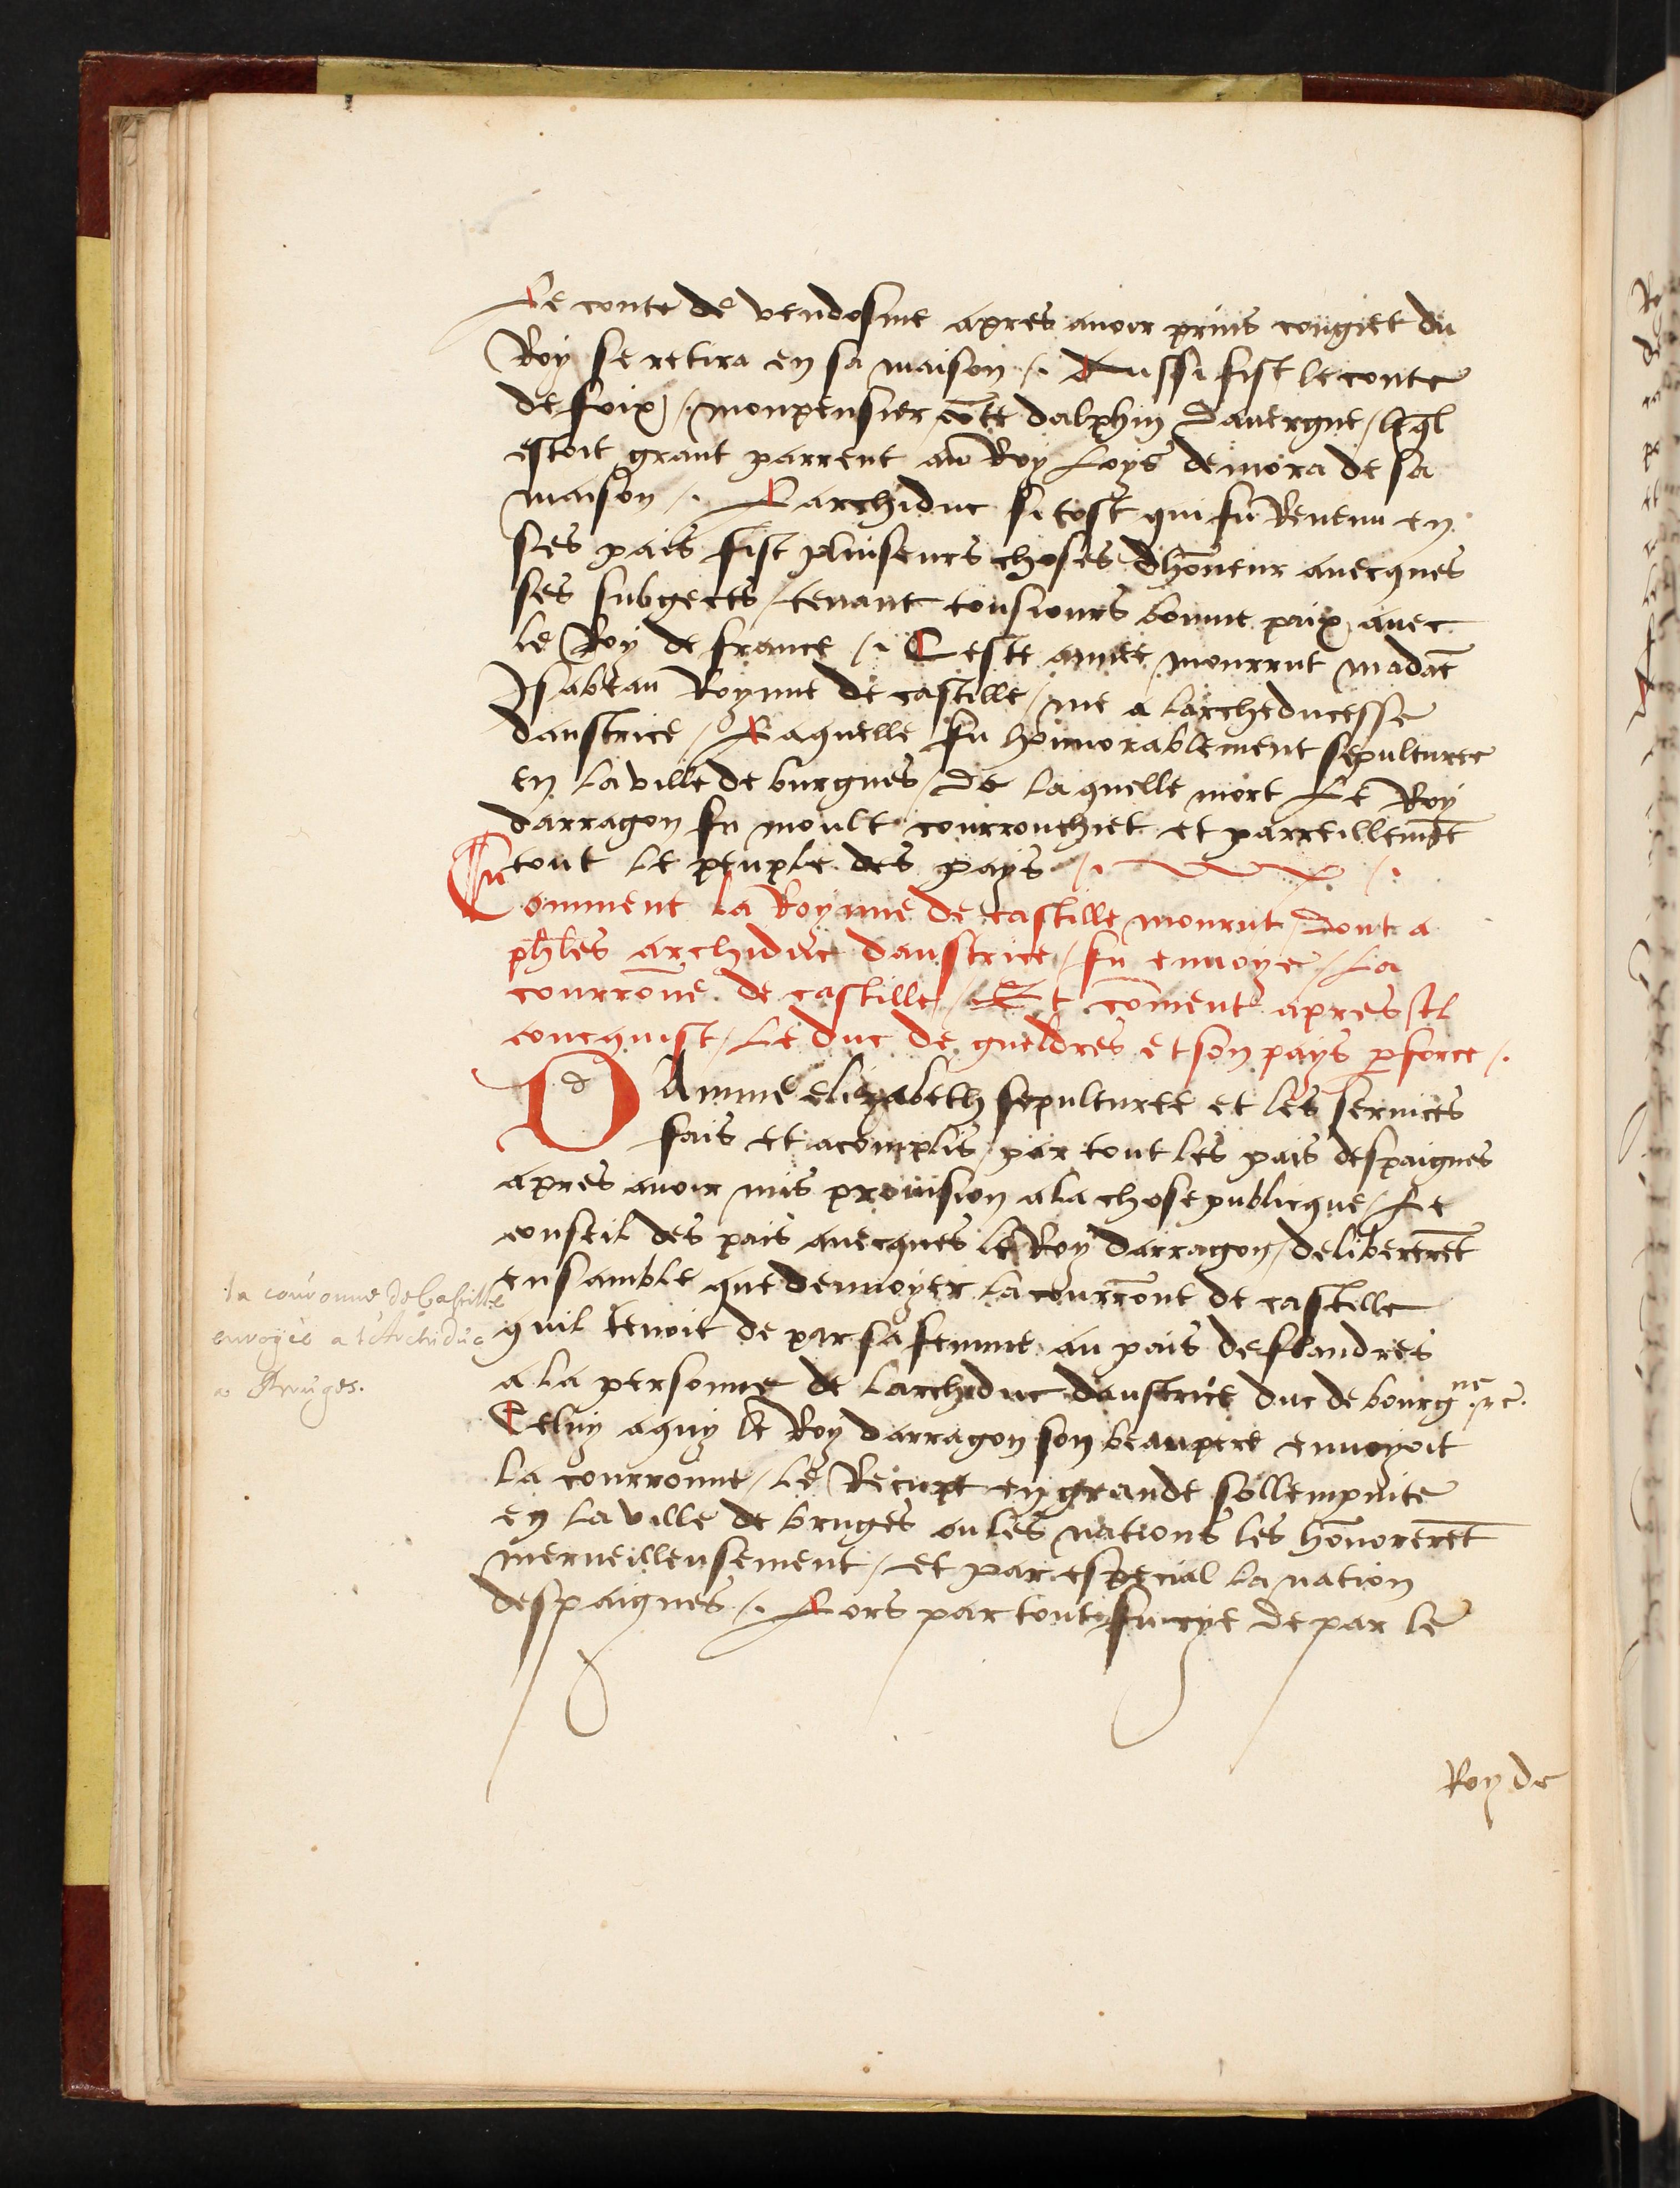 Le conte de vendosme apres auoir prins congiet du
Roy se retira en sa maison /. Aussi fist le conte
de foix /. monpensier cōte dalphin dauergne / leq̄l
estoit grant parrent au Roy Loys demora de sa
maison /. Larchiduc si tost qui fu Reuenu en
ses pais fist pluiseurs choses dhōneur auecques
ses subgects / tenant tousiours bonne paix auec
le Roy de france /. Ceste annee mourrut madāe
Isabeau Roynne de castille / me a larcheducesse
daustrice / Laquelle fu honnorablement sepulturee
en la ville de burgues / de la quelle mort Le Roy
darragon fu moult courrouchiet et parreillemēt
tout le peuple des pays /.
Comment la Roynne de castille mourut / dont a
ph̄les archiduc daustrice / fu enuoye / la
courrōne de castille / Et cōment apres Il
concquist / Le duc de gueldres et son pays p̄ force /.
DAmme elizabeth sepulturee et les seruices
fais et acomplis / par tout les pais despaignes
apres auoir mis prouision a la chose publicque / Le
conseil des pais auecques le Roy darragon / delibererēt
ensamble que denuoyer la courrōne de castille
quil tenoit de par sa femme au pais de flandres
a la personne de larchiduc daustrice duc de bourg ne
Celuy a quy le Roy darragon son beaupere enuoyoit
la courronne / le Recupt en grande sollempnite
en la ville de bruges ou les nations les hōnorerēt
merueilleusement / et par especial la nation
despaignes /. Lors par tout fu crye de par le
Roy de
la couronne de Castille
envoyée a l'Archiduc
a Bruges.